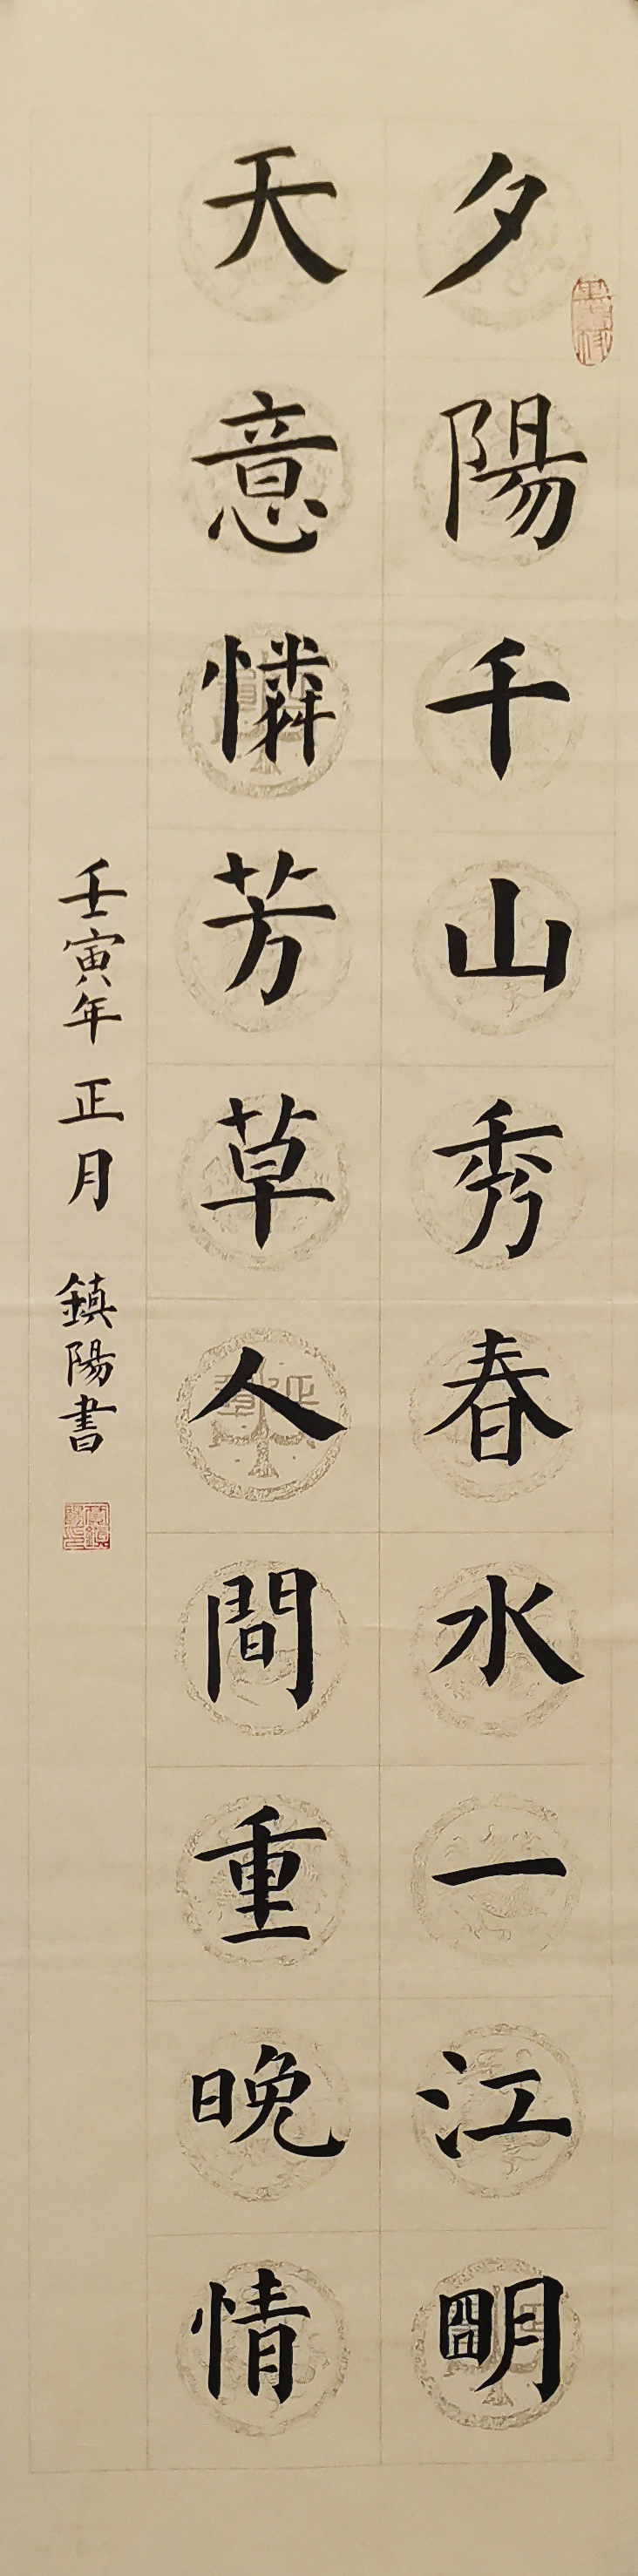 夕陽千山秀春水一江明
天意憐芳草人間重晚情
壬寅年正月鎮陽書